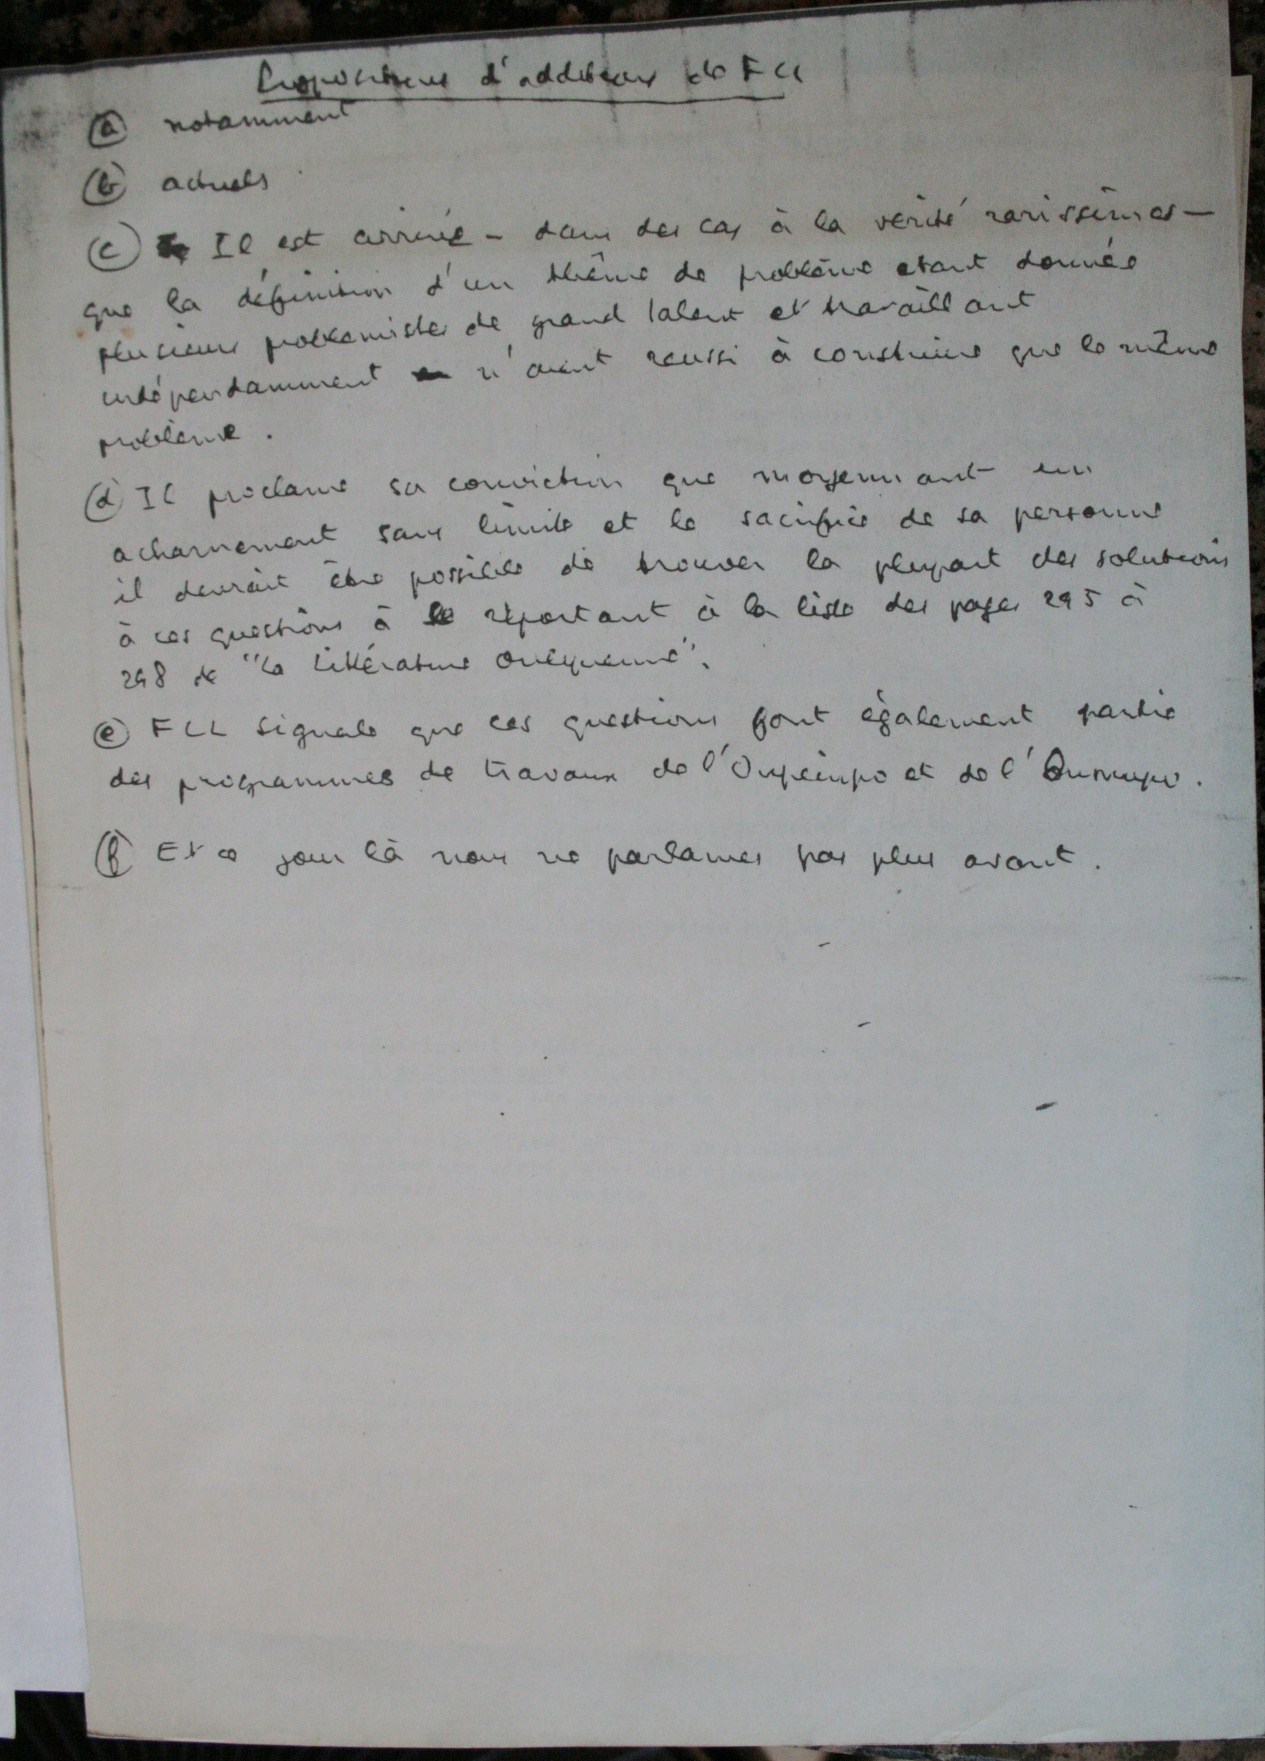 Propositions d'additions de FLL
(a) notamment
(b) actuels
(c) Il est arrivé - dans des cas à la vérité rarissimes -
que la définition d'un thème de problème étant donnée
plusieurs problémistes de grand talent et travaillant
indépendamment n'aient réussi à construire que le même
problème.
(d) Il proclame sa conviction que moyennant un
acharnement sans limite et le sacrifice de sa personne
il devrait être possible de trouver la plupart des solutions
à ces questions à se reportant à la liste des pages 295 à
298 de "la Littérature Oulipienne".
(e) FLL signale que ces questions font également partie
des programmes de travaux de l'Oupeinpo et de l'Oumupo.
(f) Et ce jour là nous ne parlames pas plus avant.